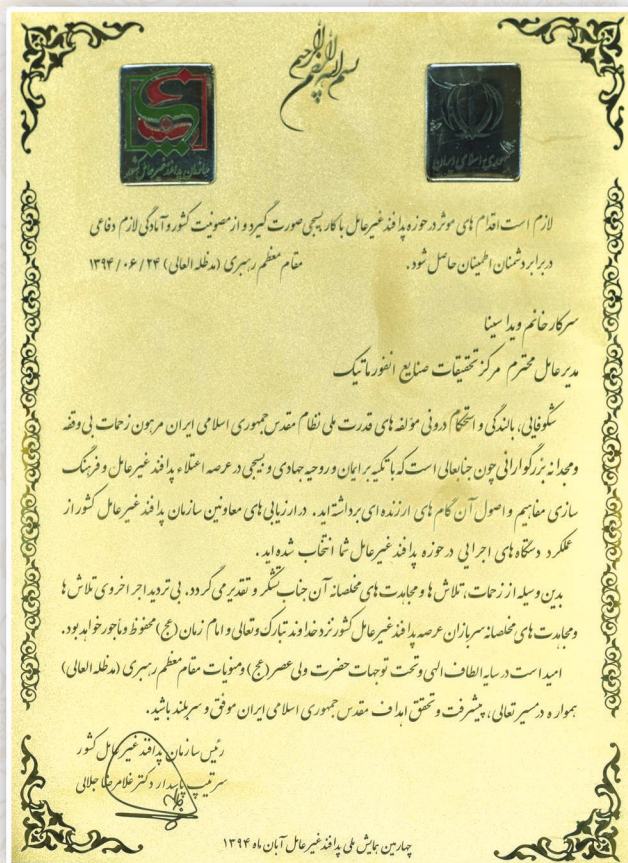 بسم الله الرحمن الرحیم
سازمان پدافند غیرعامل کشور
جمهوری اسلامی ایران
لازم است اقدام های موثر در حوزه پدافند غیرعامل با کار بسیجی صورت گیرد و از مصونیت کشور و آمادگی لازم دفاعی
در برابر دشمنان اطمینان حاصل شود. مقام معظم رهبری (مدظله العالی) ۱۳۹۴/۰۶/۲۴
سرکار خانم ویدا سینا
مدیر عامل محترم مرکز تحقیقات صنایع انفورماتیک
شکوفایی، بالندگی و استحکام درونی مؤلفه های قدرت ملی نظام مقدس جمهوری اسلامی ایران مرهون زحمات بی وقفه
ومجدانه بزرگوارانی چون جنابعالی است که با تکیه بر ایمان و روحیه جهادی و بسیجی در عرصه اعتلاء پدافند غیرعامل و فرهنگ
سازی مفاهیم و اصول آن گام های ارزنده ای برداشته اید. در ارزیابی های معاونین سازمان پدافند غیرعامل کشور از
عملکرد دستگاه های اجرایی در حوزه پدافند غیرعامل شما انتخاب شده اید.
بدین وسیله از زحمات، تلاش ها و مجاهدت های مخلصانه آن جناب تشکر و تقدیر می گردد. بی تردید اجر اخروی تلاش ها
ومجاهدت های مخلصانه سربازان عرصه پدافند غیرعامل کشور نزد خداوند تبارک و تعالی و امام زمان (عج) محفوظ و مأجور خواهد بود.
امید است در سایه الطاف الهی و تحت توجهات حضرت ولی عصر (عج) و منویات مقام معظم رهبری (مدظله العالی)
همواره در مسیر تعالی، پیشرفت و تحقق اهداف مقدس جمهوری اسلامی ایران موفق و سربلند باشید.
رئیس سازمان پدافند غیرعامل کشور
سرتیپ پاسدار دکتر غلامرضا جلالی
چهارمین همایش ملی پدافند غیرعامل آبان ماه ۱۳۹۴